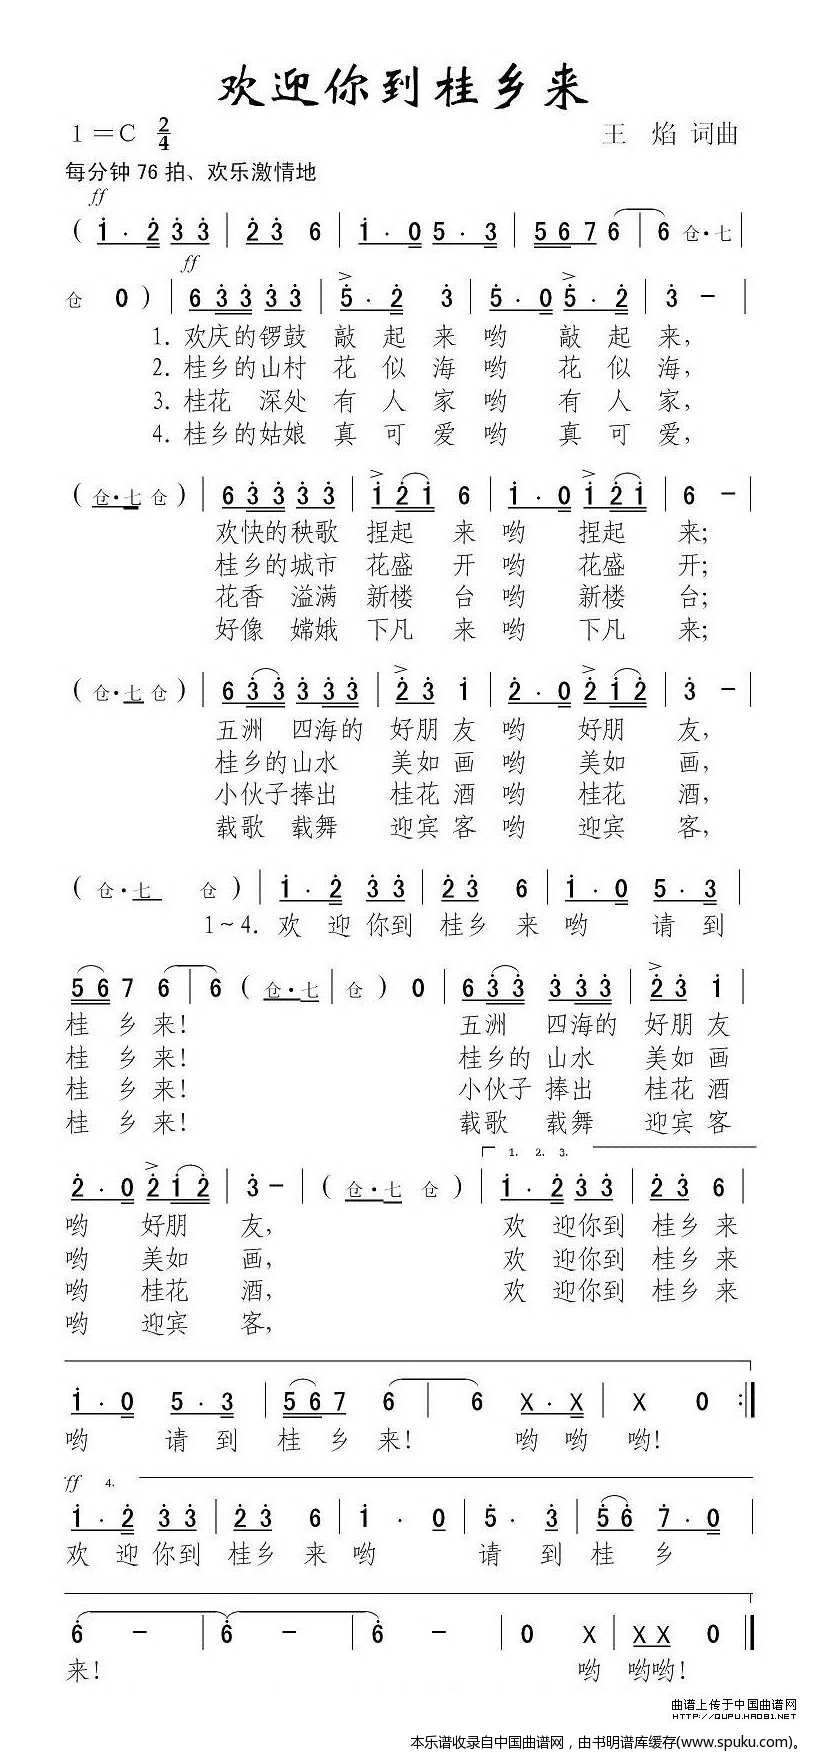 欢迎你到桂乡来
1=C 2/4
王 焰 词曲
每分钟 76 拍、欢乐激情地
ff
( 1 . 2 3 3 | 2 3 6 | 1 . 0 5 . 3 | 5 6 7 6 | 6 仓 . 七 |
ff
仓 0 ) | 6 3 3 3 3 | 5 . 2 3 | 5 . 0 5 . 2 | 3 - |
1. 欢庆的锣鼓 敲 起 来 哟 敲 起 来,
2. 桂乡的山村 花 似 海 哟 花 似 海,
3. 桂花 深处 有 人 家 哟 有 人 家,
4. 桂乡的姑娘 真 可 爱 哟 真 可 爱,
( 仓 . 七 仓 ) | 6 3 3 3 3 | 1 2 1 6 | 1 . 0 1 2 1 | 6 - |
欢快的秧歌 捏起 来 哟 捏起 来;
桂乡的城市 花盛 开 哟 花盛 开;
花香 溢满 新楼 台 哟 新楼 台;
好像 嫦娥 下凡 来 哟 下凡 来;
( 仓 . 七 仓 ) | 6 3 3 3 3 3 | 2 3 1 | 2 . 0 2 1 2 | 3 - |
五洲 四海的 好朋 友 哟 好朋 友,
桂乡的山水 美如 画 哟 美如 画,
小伙子捧出 桂花 酒 哟 桂花 酒,
载歌 载舞 迎宾 客 哟 迎宾 客,
( 仓 . 七 仓 ) | 1 . 2 3 3 | 2 3 6 | 1 . 0 5 . 3 |
1~4. 欢 迎 你到 桂乡 来 哟 请 到
5 6 7 6 | 6 ( 仓 . 七 | 仓 ) 0 | 6 3 3 3 3 3 | 2 3 1 |
桂 乡 来! 五洲 四海的 好朋 友
桂 乡 来! 桂乡的 山水 美如 画
桂 乡 来! 小伙子 捧出 桂花 酒
桂 乡 来! 载歌 载舞 迎宾 客
1. 2. 3.
2 . 0 2 1 2 | 3 - | ( 仓 . 七 仓 ) | 1 . 2 3 3 | 2 3 6 |
哟 好朋 友, 欢 迎你到 桂乡 来
哟 美如 画, 欢 迎你到 桂乡 来
哟 桂花 酒, 欢 迎你到 桂乡 来
哟 迎宾 客,
1 . 0 5 . 3 | 5 6 7 6 | 6 X . X | X 0 :|
哟 请 到 桂 乡 来! 哟 哟 哟!
ff 4.
1 . 2 3 3 | 2 3 6 | 1 . 0 | 5 . 3 | 5 6 7 . 0 |
欢 迎 你到 桂乡 来 哟 请 到 桂 乡
6 - | 6 - | 6 - | 0 X | X X 0 |
来! 哟 哟哟!
曲谱上传于中国曲谱网
HTTP://QUPU.HAO81.NET
本乐谱收录自中国曲谱网，由书明谱库缓存(www.spuku.com)。